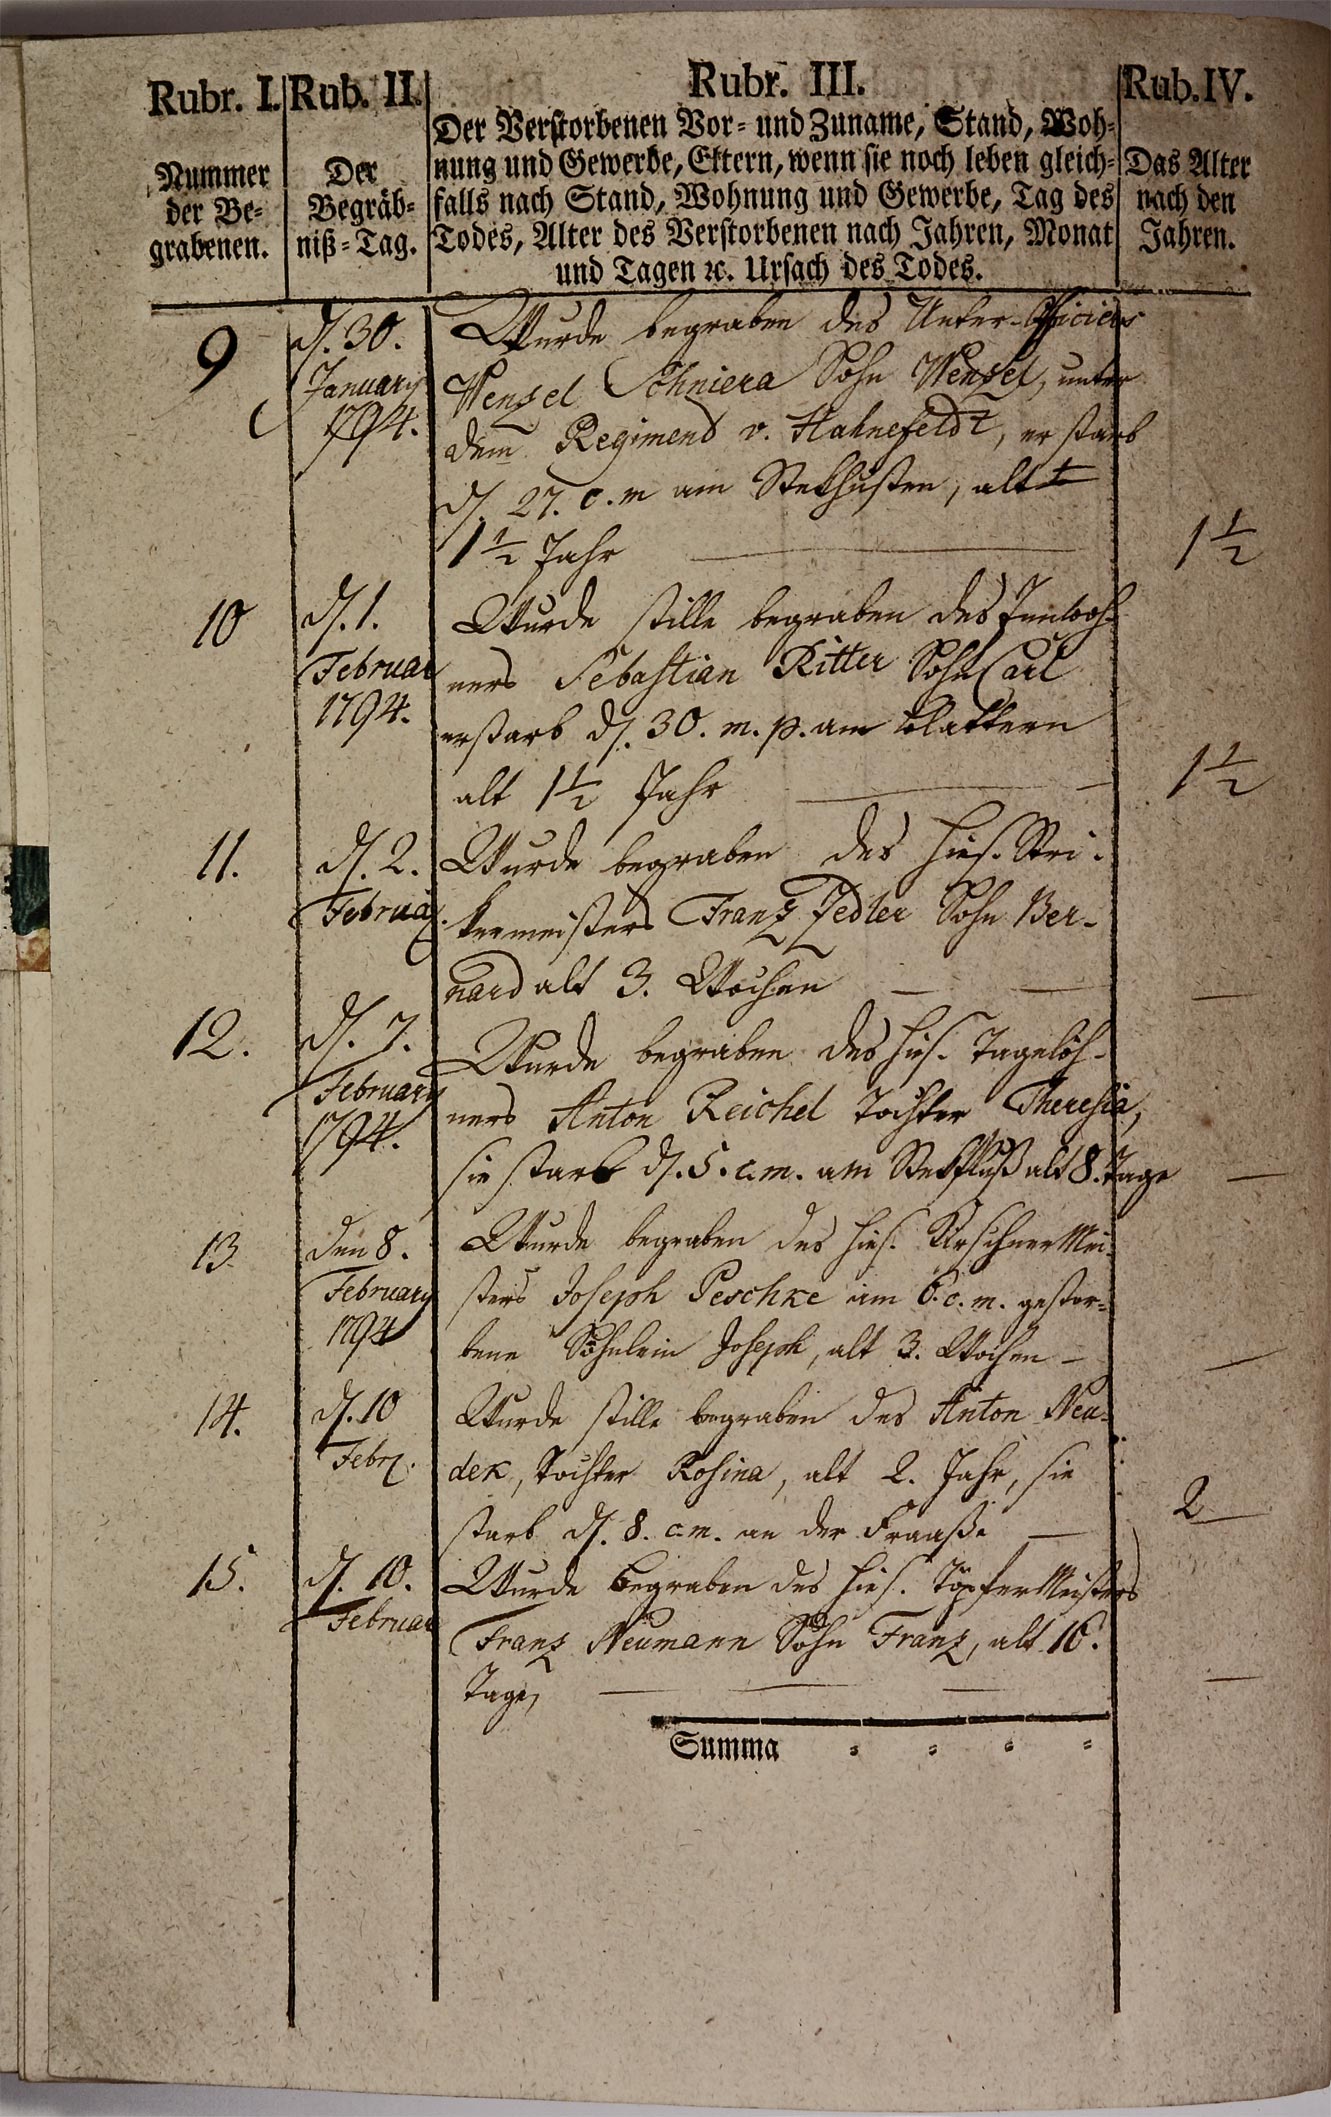 Rubr. I. Rub. II. Rubr. III. Rub. IV.
Nummer der Be=
grabenen.
Der
Begräb=
niß=Tag.
Der Verstorbenen Vor= und Zuname, Stand, Woh=
nung und Gewerbe, Eltern, wenn sie noch leben gleich=
falls nach Stand, Wohnung und Gewerbe, Tag des
Todes, Alter des Verstorbenen nach Jahren, Monat
und Tagen ꝛc. Ursach des Todes.
Das Alter
nach den
Jahren.
9
d. 30.
January
1794.
Wurde begraben des Unter-Officiers
Wenzel Schniera Sohn Wenzel, unter
dem Regimend v. Hahnefeldt, er starb
d. 27. c. m am Stekhusten, alt
1 1/2 Jahr
1 1/2
10
d. 1.
Februar
1794.
Wurde stille begraben des Innwoh-
ners Sebastian Ritter Sohn Carl
erstarb d. 30. m. p. am Blattern
alt 1 1/2 Jahr
1 1/2
11.
d. 2.
Februar
Wurde begraben des hies. Stri-
kermeisters Franz Jedler Sohn Ber-
nard alt 3. Wochen
12.
d. 7.
February
1794.
Wurde begraben des hies. Tagelöh-
ners Anton Reichel Tochter Theresia,
sie starb d. 5. c. m. am Stekfluß alt 8. Tage
13.
den 8.
February
1794
Wurde begraben des hies. Kirschner Mei-
sters Joseph Peschke am 6. c. m. gestor=
bene Söhnlein Joseph, alt 3. Wochen
14.
d. 10
Febr.
Wurde stille begraben des Anton Neu=
dek, Tochter Rosina, alt 2. Jahr, sie
starb d. 8. c. m. an der Fraaße
2
15.
d. 10.
Februar
Wurde begraben des hies. Töpfer Meisters
Franz Neumann Sohn Franz, alt 16.
Tage,
Summa = = = =